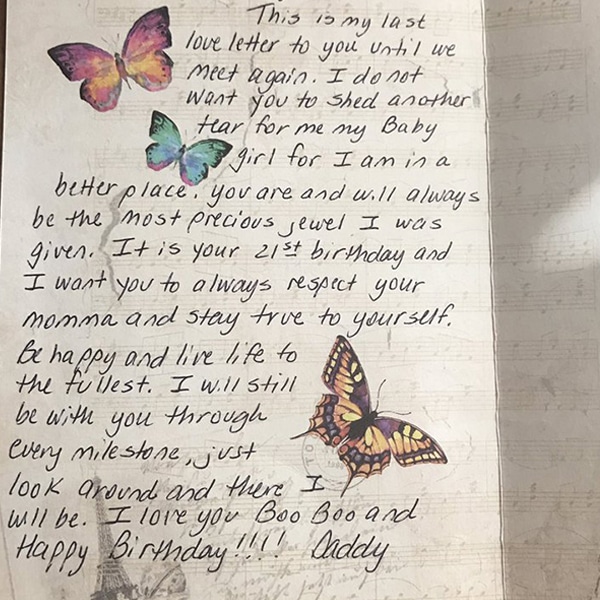 This is my last
love letter to you until we
meet again. I do not
want you to shed another
tear for me my Baby
girl for I am in a
better place. you are and will always
be the most precious jewel I was
given. It is your 21st birthday and
I want you to always respect your
momma and stay true to yourself.
Be happy and live life to
the fullest. I will still
be with you through
every milestone, just
look around and there I
will be. I love you Boo Boo and
Happy Birthday!!!! Daddy